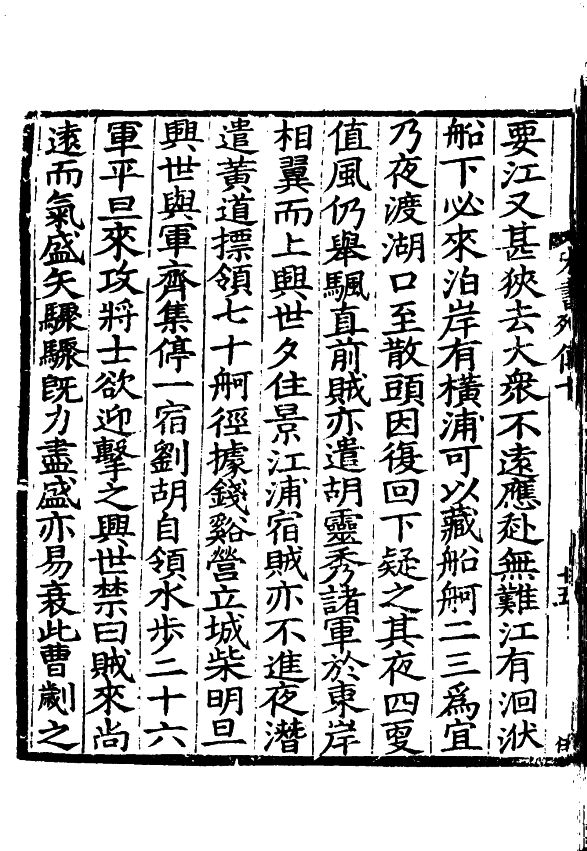 要江又甚狹去大衆不遠應赴無難江有洄洑
船下必來泊岸有橫浦可以藏船舸二三爲宜
乃夜渡湖口至散頭因復回下疑之其夜四更
值風仍舉颿直前賊亦遣胡靈秀諸軍於東岸
相翼而上興世夕住景江浦宿賊亦不進夜潛
遣黃道摽領七十舸徑據錢谿營立城柴明旦
興世與軍齊集停一宿劉胡自領水步二十六
軍平旦來攻將士欲迎擊之興世禁曰賊來尚
遠而氣盛矢驟驟旣力盡盛亦易衰此曹劌之